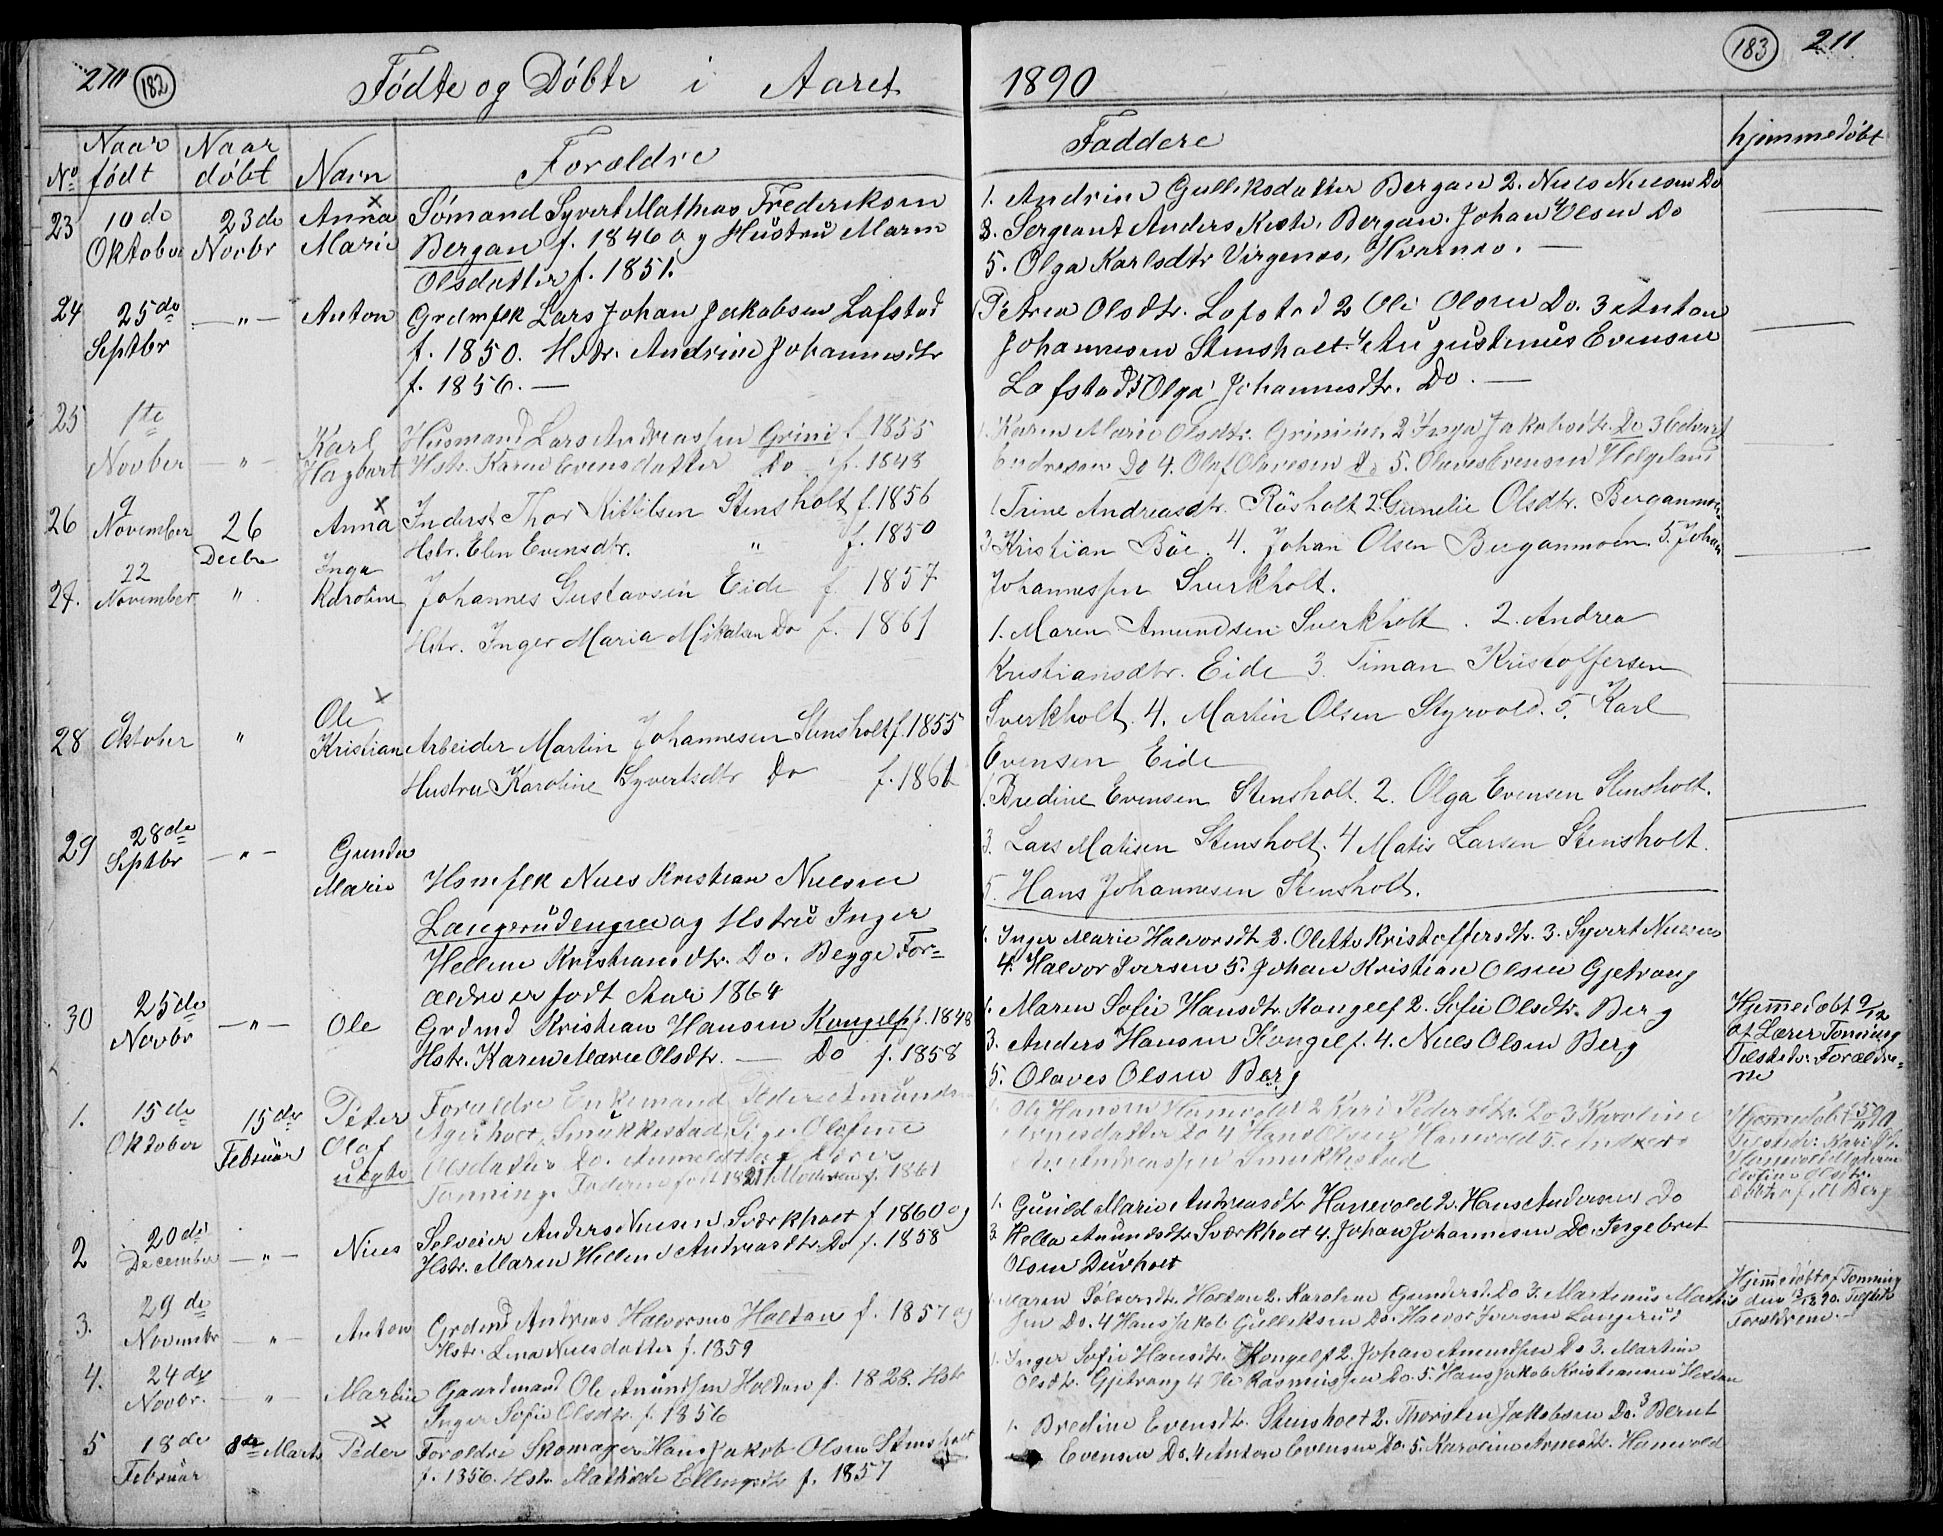 270 182 Fødte og Døbte i Aaret
No Naar født Naar døbt Navn Forældre
23 10de Oktober 23de Novbr Anna Marie Sømand Syvert Mathias Frederiksen
Bergan f. 1846 og Hustru Maren
Olsdatter f. 1851.
24 25de Septbr — " — Anton Grdmfsk Lars Johan Jakobsen Lofstad
f. 1850. Hstr. Andrine Johannesdtr
f. 1856. —
25 1te Novber — " — Karl Hagbart Husmand Lars Andreassen Grini f. 1855
Hstr. Karen Evensdatter Do f. 1843
26 9 November 26 Decbr Anna Inderst Thor Kittilsen Stensholt f. 1856
Hstr. Elen Evensdtr. " f. 1850
27. 22 November " Inga Karoline Johannes Gustavsen Eide f. 1857
Hstr. Inger Maria Mikalsen Do f. 1861
28 9 Oktober " Ole Kristian Arbeider Martin Johannesen Stensholt f. 1855
Hustru Karoline Syvertsdtr Do f. 1861
29 28de Septbr — " — Gunda Marie Hsmfsk Niels Kristian Nielsen
Langerudengen og Hstru Inger
Hellene Kristiansdtr. Do. Begge For-
ældre er født Aar 1864
30 25de Novbr — " — Ole Grdmd Kristian Hansen Kongelf f. 1848
Hstr. Karen Marie Olsdtr. — Do f. 1858
1. 15de Oktober 15de Februar Peter Olaf uægte Forældre Enkemand Peder Amunds-
Smukkestad Pige Olofine
Olsdatter Do. Anmeldt af Lærer
Tonning. Faderen født 1821 Moderen f. 1861
2 20de December — " — Niels Selveier Anders Nielsen Sværkholt f 1860 og
Hstr. Maren Hellene Andreasdtr. Do f. 1858
3. 29de Novembr — " — Anton Grdmd Andreas Halvorsen Holtan f. 1857 og
Hstr. Lina Nielsdatter f. 1859
4. 24de Novbr. — " — Martin Gaardmand Ole Amundsen Holtan f. 1828. Hstr
Inger Sofie Olsdtr. f. 1856
5 18de Februar 8de Marts Peder Forældre Skomager Hans Jakob Olsen Stensholt
f. 1856. Hstr. Mathilde Ellingsdtr f. 1857
1890 183 211
Faddere hjemmedøbt
1. Andrine Gulliksdatter Bergan 2. Niels Nielsen Do
3. Sergeant Anders Kristr. Bergan. Johan Olsen Do
5. Olga Karlsdtr Virgenæs, Hvarnes. —
1 Petrea Olsdtr. Lofstad 2 Ole Olsen Do. 3 Anton
Johannesen Stensholt 4 Augustenus Evensen
Lofstad 5 Olga Johannesdtr. Do. —
1. Karen Marie Olsdtr. Grini 2 Inga Jakobsdtr. Do 3 Edvart
Andresen Do 4. Olaf Olavesen Do 5. Olaves Evensen Helgeland
1 Trine Andreasdtr. Råsholt 2. Gunelie Olsdtr. Berganmoen
3 Kristian Böe. 4. Johan Olsen Berganmoen. 5. Johan
Johannessen Sverkholt.
1. Maren Amundsen Sverkholt. 2. Andrea
Kristiansdtr. Eide 3. Timan Kristoffersen
Sverkholt. 4. Martin Olsen Styrvold. 5. Karl
Evensen Eide
1. Bredine Evensen Stensholt. 2. Olga Evensen Stensholt.
3. Lars Matisen Stensholt. 4 Matis Larsen Stensholt.
5. Hans Johannesen Stensholt.
1. Inger Marie Halvorsdtr 2. Olette Kristoffersdtr. 3. Syvert Nielsen
4. Halvor Iversen 5. Johan Kristian Olsen Gjetvang
1. Maren Sofie Hansdtr. Kongelf 2. Sofie Olsdtr. Berg
3. Anders Hansen Kongelf. 4. Niels Olsen Berg
5. Olaves Olsen Berg
Hjemmedøbt 9/12
af Lærer Tonning
Tilstede: Forældre-
ne
1. Ole Hansen Hanevold 2 Kari Pedersdtr. Do 3 Karoline
Arnesdatter Do 4 Hans Olsen Hanevold 5. Andreas
Andreassen Smukkestad
Hjemmedøbt
Tilstede: Kari
Hanevold Moderen
Olofine Olsdtr.
Døbt af M Berg
1. Gunild Marie Andreasdtr Hanevold 2. Hans Andersen Do
3. Hella Amundsdtr Sværkholt 4. Johan Johannesen Do. Ingebret
Olsen Duvholt
1. Maren Sølverdtr. Holtan 2. Karoline Gundersd. Do 3. Martenius Mathis
sen Do. 4 Hans Jakob Gulliksen Do. Halvor Iversen Langerud
Hjemmedøbt af Tonning
den 13/12 1890. Tilstede
Forældrene.
1. Inger Sofie Hansdtr. Kongelf 2. Johan Amundsen Do 3. Martine
Olsdtr. Gjetvang 4 Ole Rasmussen Do. 5. Hans Jakob Kristiansen Holtan
1. Bredine Evensdtr. Stensholt 2. Thorsten Jakobsen Do. 3 Bernt
Evensen Do. 4 Anton Evensen Do. 5. Karoline Arnesdtr. Hanevold